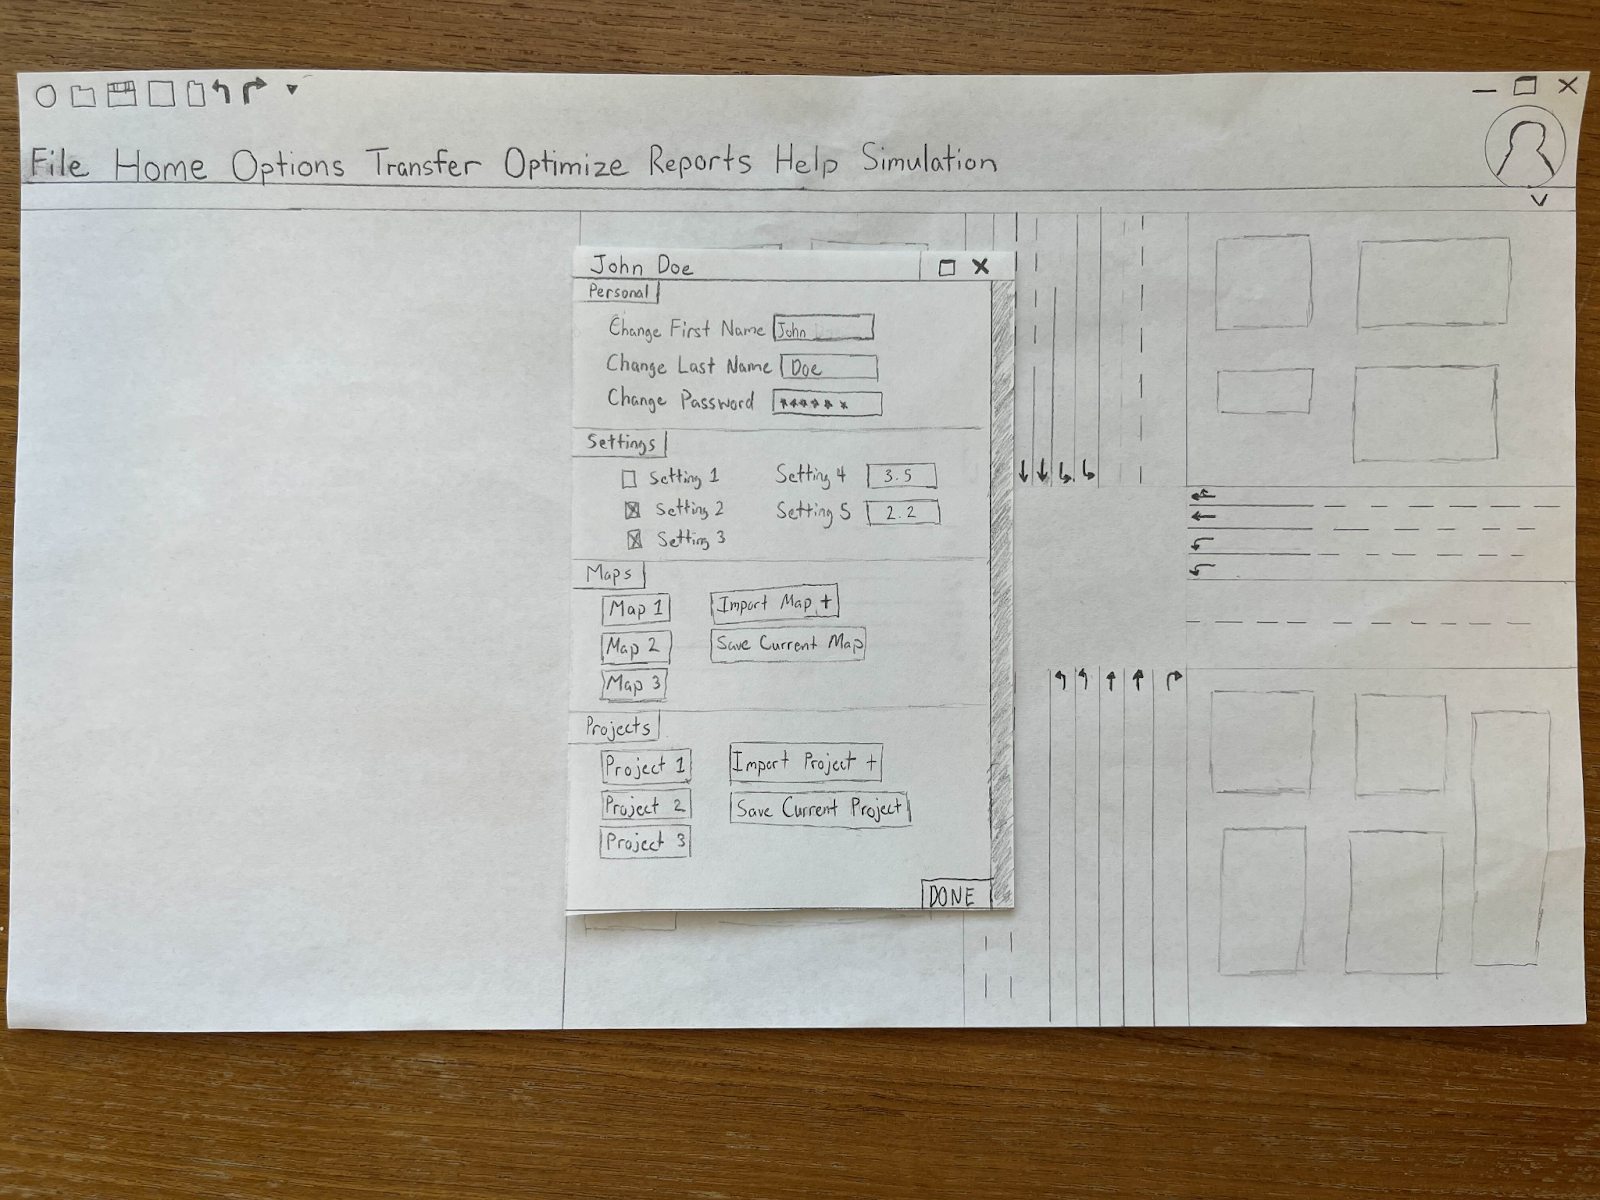 File Home Options Transfer Optimize Reports Help Simulation
John Doe
Personal
Change First Name John
Change Last Name Doe
Change Password ******
Settings
Setting 1 Setting 4 3.5
Setting 2 Setting 5 2.2
Setting 3
Maps
Map 1 Import Map +
Map 2 Save Current Map
Map 3
Projects
Project 1 Import Project +
Project 2 Save Current Project
Project 3
DONE